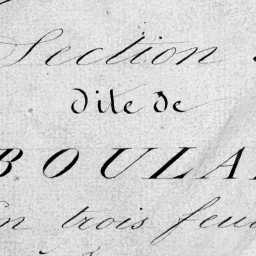 Section
dite de
BOULA
En trois feu